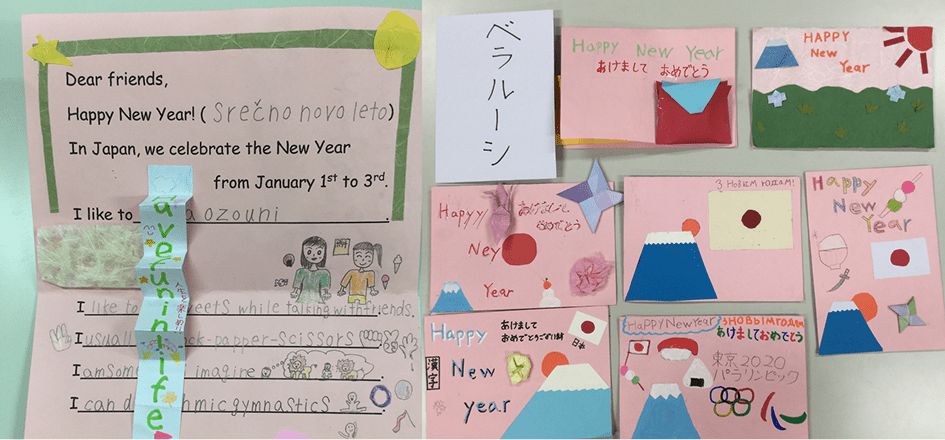 Dear friends,
Happy New Year! ( Srečno novo leto)
In Japan, we celebrate the New Year
from January 1st to 3rd.
I like to a ozouni .
I like to eets while talking with friends.
I usual ck-papper-scissors
I am some imagine
I can d hmic gymnastics
ave un in life
ベラルーシ
Happy New Year
あけまして おめでとう
HAPPY
New
Year
Hapyy
あけまして
おめでとう
Ney
Year
З Новым годам!
Happy
New
Year
Happy
あけまして
おめでとうございます
日本
漢字
New
year
HaPPY New Year
З НОВЫМ ГОДАМ
あけましておめでとう
東京2020
パラリンピック